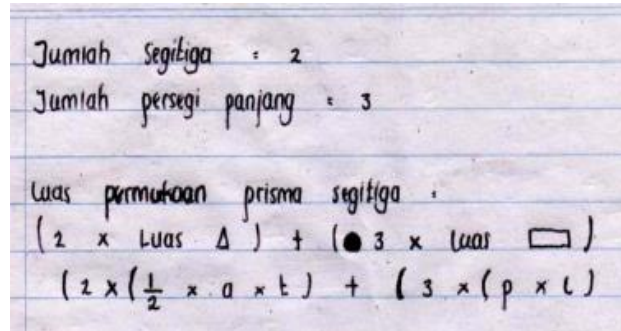 Jumlah Segitiga : 2
Jumlah persegi panjang : 3
Luas permukaan prisma segitiga :
( 2 x Luas Δ ) + ( 3 x luas ▭ )
( 2 x ( 1/2 x a x t ) + ( 3 x ( p x l )